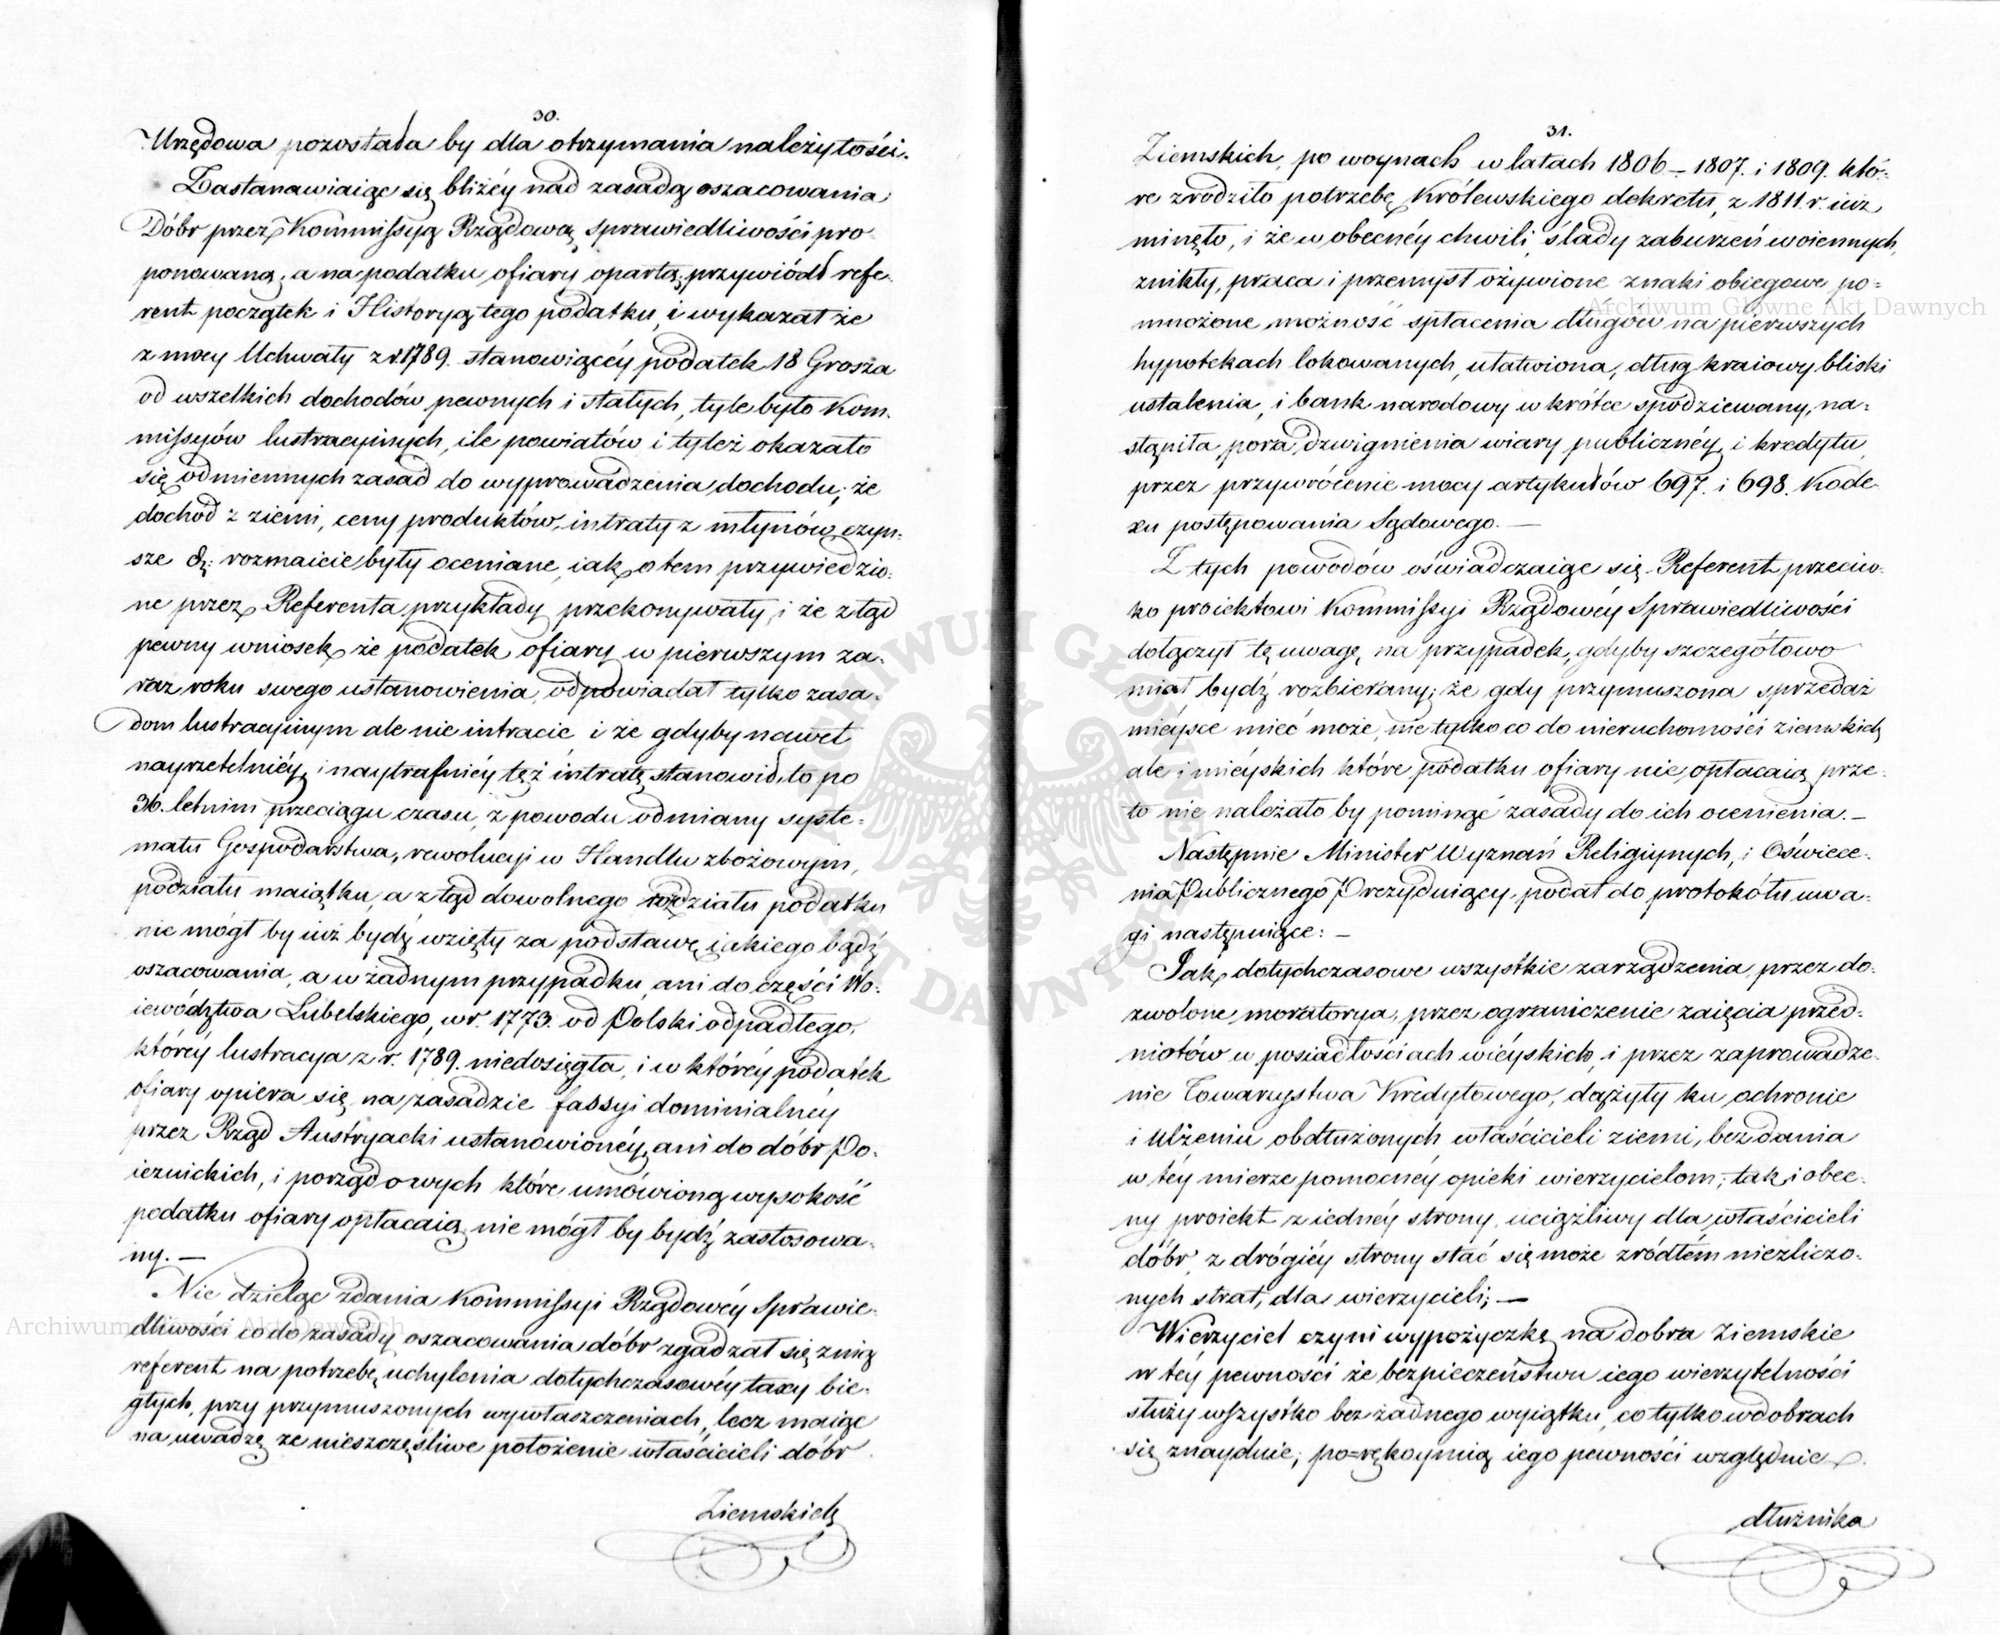 30.
Urzędowa pozostała by dla otrzymania należytości.
Zastanawiaiąc się bliżéy nad zasadą oszacowania
Dóbr przez Kommissyą Rządową sprawiedliwości pro-
ponowaną, a na podatku ofiary opartą, przywiódł refe-
rent początek i Historyą tego podatku, i wykazał że
z mocy Uchwały z r. 1789. stanowiącéy podatek 18 Grosza
od wszelkich dochodów pewnych i stałych, tyle było Kom-
missyów lustracyinych, ile powiatów i tyleż okazało
się odmiennych zasad do wyprowadzenia dochodu, że
dochód z ziemi, ceny produktów, intraty z młynów, czyn-
sze &: rozmaicie były oceniane, iak o tem przywiedzio-
ne przez Referenta przykłady przekonywały, i że ztąd
pewny wniosek, że podatek ofiary w pierwszym za-
raz roku swego ustanowienia, odpowiadał tylko zasa-
dom lustracyinym ale nie intracie i że gdyby nawet
nayrzetelniéy, i naytrafniéy też intratę stanowił, to po
36. letnim przeciągu czasu, z powodu odmiany syste-
matu Gospodarstwa, rewolucyi w Handlu zbożowym,
podziału maiątku, a ztąd dowolnego rozdziału podatku
nie mógł by iuż bydź wzięty za podstawę iakiego bądź
oszacowania, a w żadnym przypadku, ani do części Wo-
iewództwa Lubelskiego, w r. 1773. od Polski odpadłego,
któréy lustracya z r. 1789. niedosięgła, i w któréy podatek
ofiary opiera się na zasadzie fassyi dominialnéy
przez Rząd Austryacki ustanowionéy, ani do dóbr Po-
iezuickich, i porządowych które umówioną wysokość
podatku ofiary opłacaią, nie mógł by bydź zastosowa-
ny. —
Nie dzieląc zdania Kommissyi Rządowéy Sprawie-
dliwości co do zasady oszacowania dóbr zgadzał się z nią
referent na potrzebę uchylenia dotychczasowéy taxy bie-
głych, przy przymuszonych wywłaszczeniach, lecz maiąc
na uwadze ze nieszczęśliwe położenie właścicieli dóbr
Ziemskich
31.
Ziemskich, po woynach w latach 1806 – 1807. i 1809. któ-
re zrodziło potrzebę Królewskiego dekretu, z 1811. r. iuż
minęło, i że w obecnéy chwili, ślady zaburzeń woiennych,
znikły, praca i przemysł ożywione znaki obiegowe po-
mnożone, możność spłacenia długów na pierwszych
hypotekach lokowanych, ułatwiona, dług kraiowy bliski
ustalenia, i bank narodowy w krótce spodziewany, na-
stąpiła pora dzwignienia wiary publicznéy, i kredytu
przez przywrócenie mocy artykułów 697. i 698. Kode-
xu postępowania Sądowego. —
Z tych powodów oświadczaiąc się Referent przeciw-
ko proiektowi Kommissyi Rządowéy Sprawiedliwości
dołączył tę uwagę, na przypadek, gdyby szczegółowo
miał bydź rozbierany; że gdy przymuszona sprzedaż
mieysce mieć może, nie tylko co do nieruchomości ziemskich
ale i mieyskich które podatku ofiary nie opłacaią prze-
to nie należało by pominąć zasady do ich ocenienia. —
Następnie Minister Wyznań Religiynych, i Oświece-
nia Publicznego Prezyduiący, podał do protokółu uwa-
gi następuiące: —
Jak dotychczasowe wszystkie zarządzenia, przez do-
zwolone moratorya, przez ograniczenie zaięcia przed-
miotów w posiadłościach wieyskich, i przez zaprowadze-
nie Towarzystwa Kredytowego, dążyły ku ochronie
i ulżeniu obdłużonych właścicieli ziemi, bez dania
w téy mierze pomocnéy opieki wierzycielom; tak i obec-
ny proiekt z iednéy strony, uciążliwy dla właścicieli
dóbr, z drógiéy strony stać się może zródłém niezliczo-
nych strat, dla wierzycieli; —
Wierzyciel czyni wypożyczkę na dobra Ziemskie
w téy pewności że bezpieczeństwu iego wierzytelności
służy wszystko bez żadnego wyiątku, co tylko w dobrach
się znayduie, po=rękoymią iego pewności względnie
dłużnika
Archiwum Główne Akt Dawnych
Archiwum Główne Akt Dawnych
ARCHIWUM GŁÓWNE AKT DAWNYCH